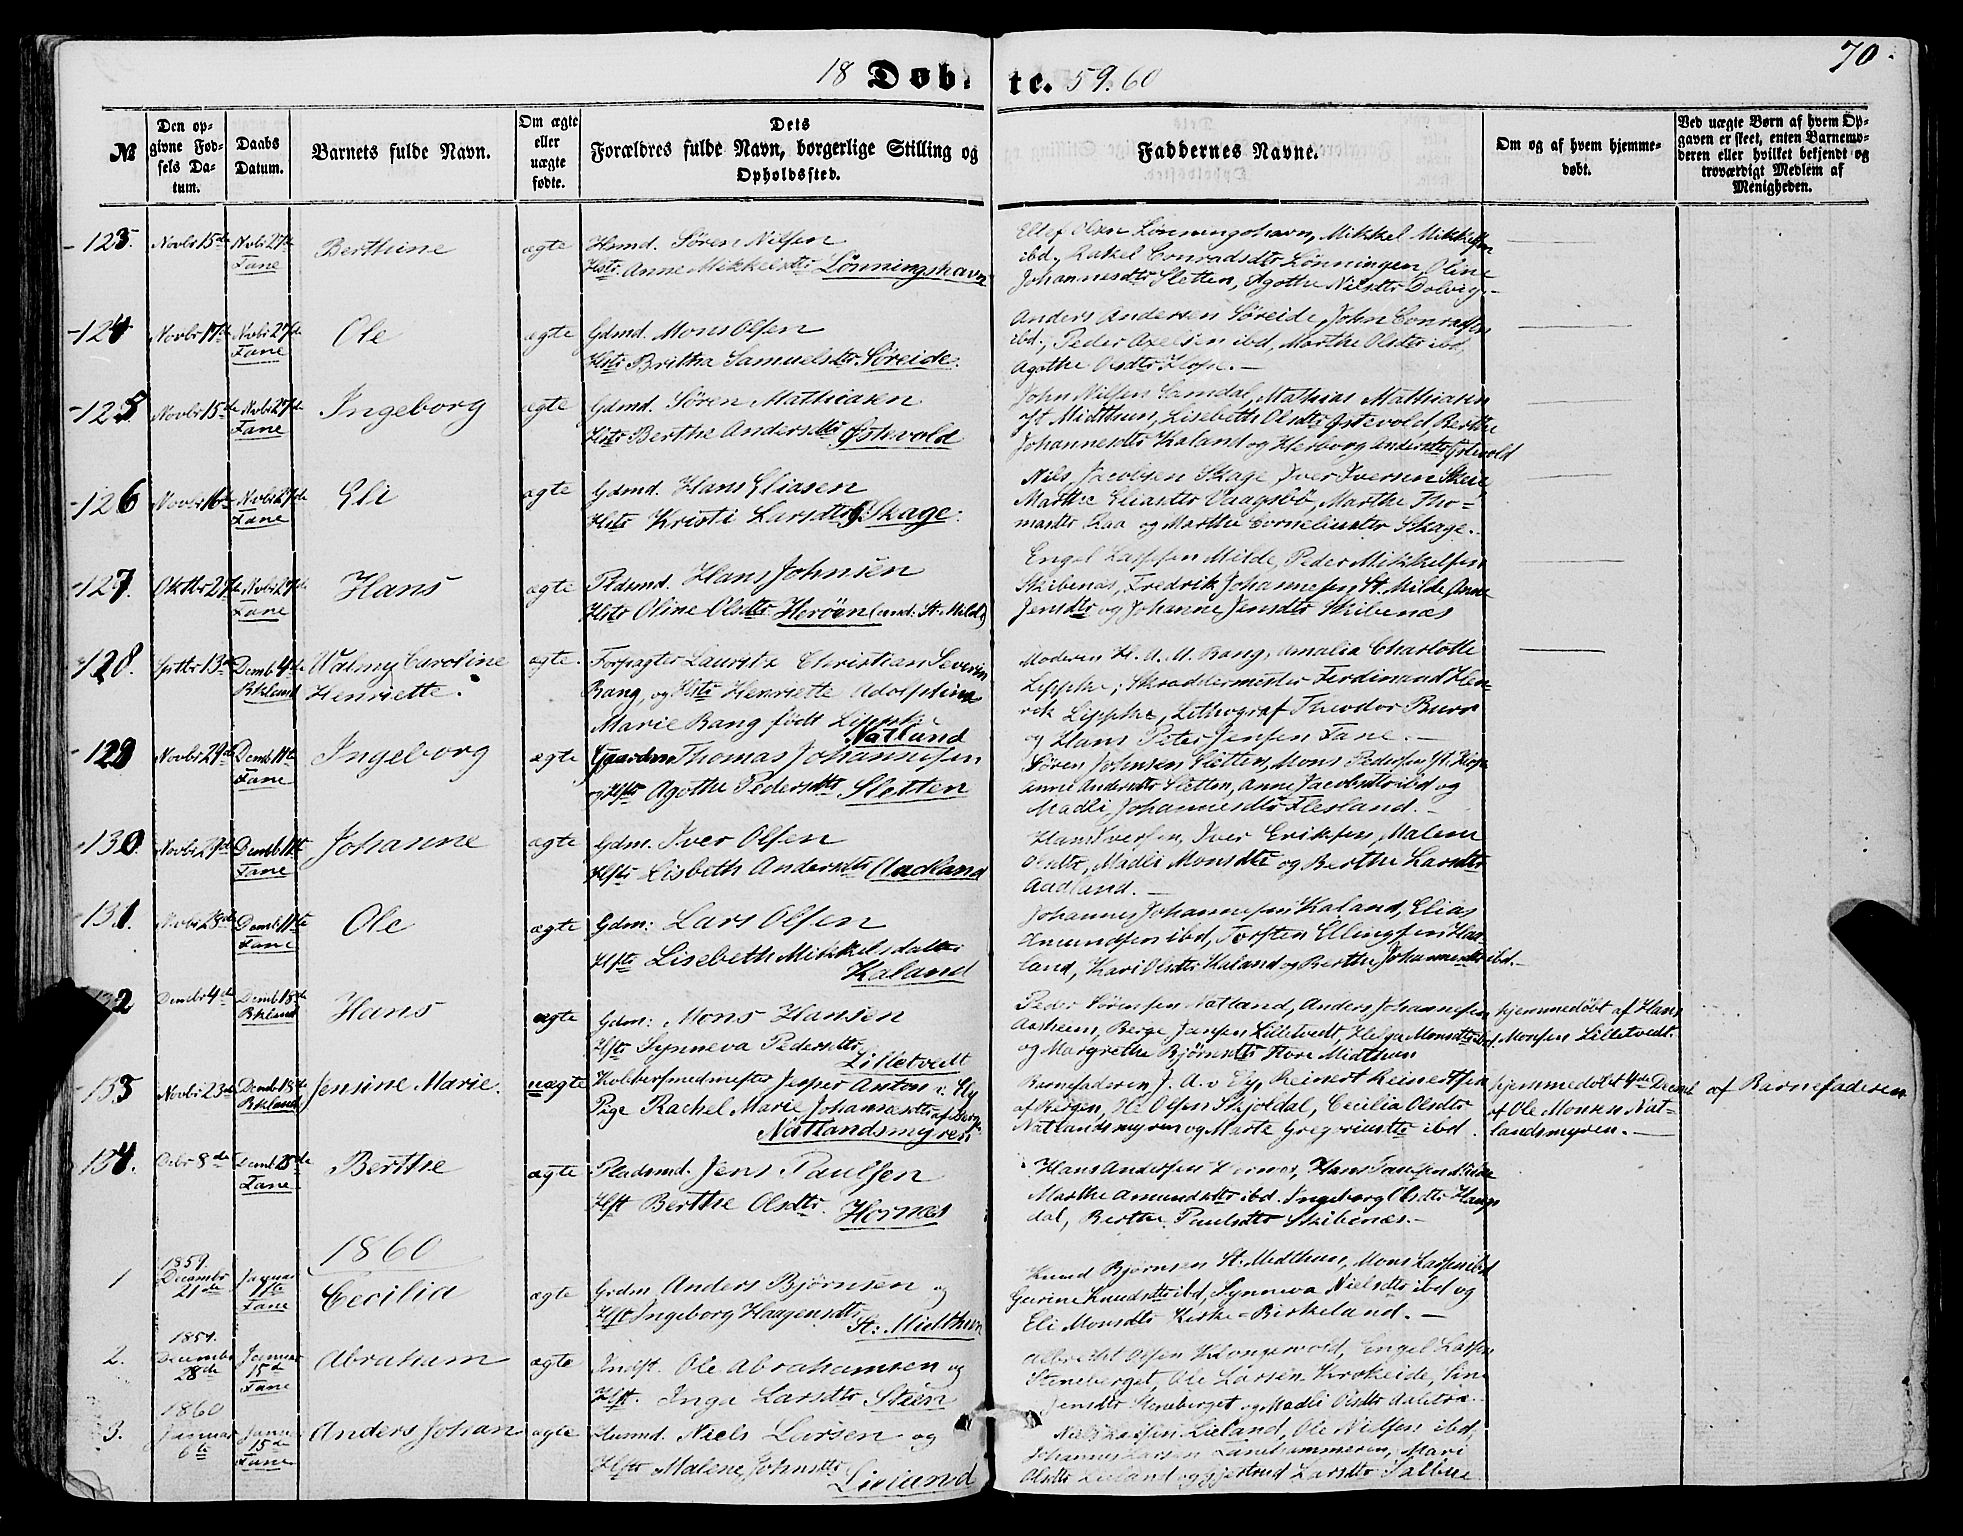 70.
18 Døbte. 59.60
№
Den opgivne Fødsels Datum.
Daabs Datum.
Barnets fulde Navn.
Om ægte eller uægte fødte.
Dets Forældres fulde Navn, borgerlige Stilling og Opholdssted.
Faddernes Navne.
Om og af hvem hjemmedøbt.
Ved uægte Børn af hvem Opgaven er skeet, enten Barnemoderen eller hvilket bekjendt og troværdigt Medlem af Menigheden.
123. Novbr 15de Novbr 27de Fane Berthine ægte Husmd. Sören Nilsen
Hstr Anne Mikkelsdtr Lönningshavn
Ellef Olsen Lönningshavn, Mikkel Mikkelsen
ibd, Rakel Conradsdtr Lönningen, Oline
Johannesdtr Sletten, Agothe Nilsdtr Dolvig.
124 Novbr 17de Novbr 27de Fane Ole ægte Gdmd. Mons Olsen
Hstr Britha Samuelsdtr Söreide.
Anders Andersen Söreide, John Conradsen
ibd, Peder Axelsen ibd, Marthe Olsdtr ibd,
Agothe Olsdtr
125 Novbr 15de Novbr 27de Fane Ingeborg ægte Gdmd. Sören Mathiasen
Hstr Berthe Andersdtr Östevold
John Nilsen Mathias Mathiasen
Midtthun, Lisebeth Olsdtr Östevold, Berthe
Johannesdtr Kaland og Herborg Andersdtr Östevold
126 Novbr 16de Novbr 27de Fane Eli ægte Gdmd. Hans Eliasen
Hstr Kristi Larsdtr Skage.
Niels Jacobsen Skage, Iver Iversen
Marthe Eliasdtr Vaagsbö, Marthe Tho=
masdtr og Marthe Corneliusdtr Skage.
127. Oktbr 27de Novbr 27de Fane Hans ægte Pldsmd. Hans Johnsen
Hstr Oline Olsdtr Heröen (und. St. Milde)
Engel Larssen Milde, Peder Mikkelsen
Skibenæs, Fredrik Johannesen St. Milde, Anne
Jensdtr og Johanne Jensdtr Skibenæs
128. Sptbr 13de Decmb 4de Bkland Valmy Caroline
Henriette. ægte. Forpagter Lauritz Christian Severin
Bang, og Hstr Henriette Adolphine
Marie Bang född Lippke
Natland
Moderen H. A. M. Bang, Amalia Charlotte
Lippke, Skræddermester Ferdinand Hen-
rik Lippke, Lithograf Theodor
og Hans Peter Jensen Fane.
129 Novbr 29de Decmb 11te Fane Ingeborg ægte Gaardm. Thomas Johannesen
og Hstr Agothe Pedersdtr Sletten
Sören Johnsen Sletten, Mons Pedersen
Anne Andersdtr Sletten, Anne Jacobsdtr ibd og
Madli Johannesdtr Flesland.
130. Novbr 29de Decmb 11te Fane Johanne ægte Gdm. Iver Olsen
Hstr Lisbeth Andersdtr Aadland
Hans Iversen, Iver Eriksen, Malene
Olsdtr, Madli Monsdtr og Berthe Larsdtr
Aadland.
131. Novbr 28de Decmb 11te Fane Ole ægte Gdm: Lars Olsen
Hstr Lisebeth Mikkelsdatter
Kaland
Johannes Johannesen Kaland, Elias
Amundsen ibd, Torsten Ellingsen
land, Kari Olsdtr Kaland og Berthe Johannesdtr ibd.
132 Decmbr 4de Decmb 18de Bkland Hans ægte Gdm: Mons Hansen
Hstr Synneva Pedersdtr
Lilletvedt
Peder Sörensen Natland, Anders Johannesen
Aasheim, Berge Jansen Lilletvedt, Helga Monsdtr ibd
og Margrethe Björnsdtr Store Midthun
hjemmedöbt af Hans
Monsen Lilletvedt.
133 Novbr 23de Decmb 18de Bkland Jensine Marie. uægte Kobbersmedmester Jesper Anton v. Ely
Pige Rachel Marie Johannesdtr af Berg.
Natlandsmyren
Barnefaderen J. A. v. Ely, Reinert Reinertsen
af Bergen, H. Olsen Skjoldal, Cecilia Olsdtr
Natlandsmyren og Marte Gregoriusdtr ibd.
hjemmedöbt 4de Decmb
af Ole Monsen Nat=
landsmyren.
af Barnefaderen
134. 8de Decmb 18de Fane Berthe ægte Pladsmd. Jens Paulsen
Hst Berthe Olsdtr. Hornæs
Hans Andersen Hornæs, Hans
Marthe Amundsdtr ibd. Ingeborg Olsdtr Haugs
dal, Berthe Paulsdtr Skibenæs.
1860
1 1859. Decembr 21de Januar Fane Cecilia ægte Grdm Anders Björnsen og
Hst Ingeborg Haagensdtr
St: Midtthun
Knud Björnsen St. Midthun, Mons Larsen ibd
Gurine Knudsdtr ibd, Synneva Nielsdtr ibd og
Eli Monsdtr Kirke=Birkeland.
2. 1859. Decembr 28de Januar 15de Fane Abraham ægte Indst. Ole Abrahamsen og
Hst. Inga Larsdtr Steen
Albrecht Olsen Klongevold, Engel Larsen
Steneberget, Ole Larsen Krokeide,
Jensdtr Steneberget og Madli Olsdtr
3. 1860 Januar 6te Janu 15de Fane Anders Johan ægte Husmd. Niels Larsen og
Hstr Malene Johnsdtr
Liland
Niels Larsen Lieland, Ole Nilsen ibd,
Johannes Larsen Mari
Olsdtr Lieland og Gjertrud Larsdtr